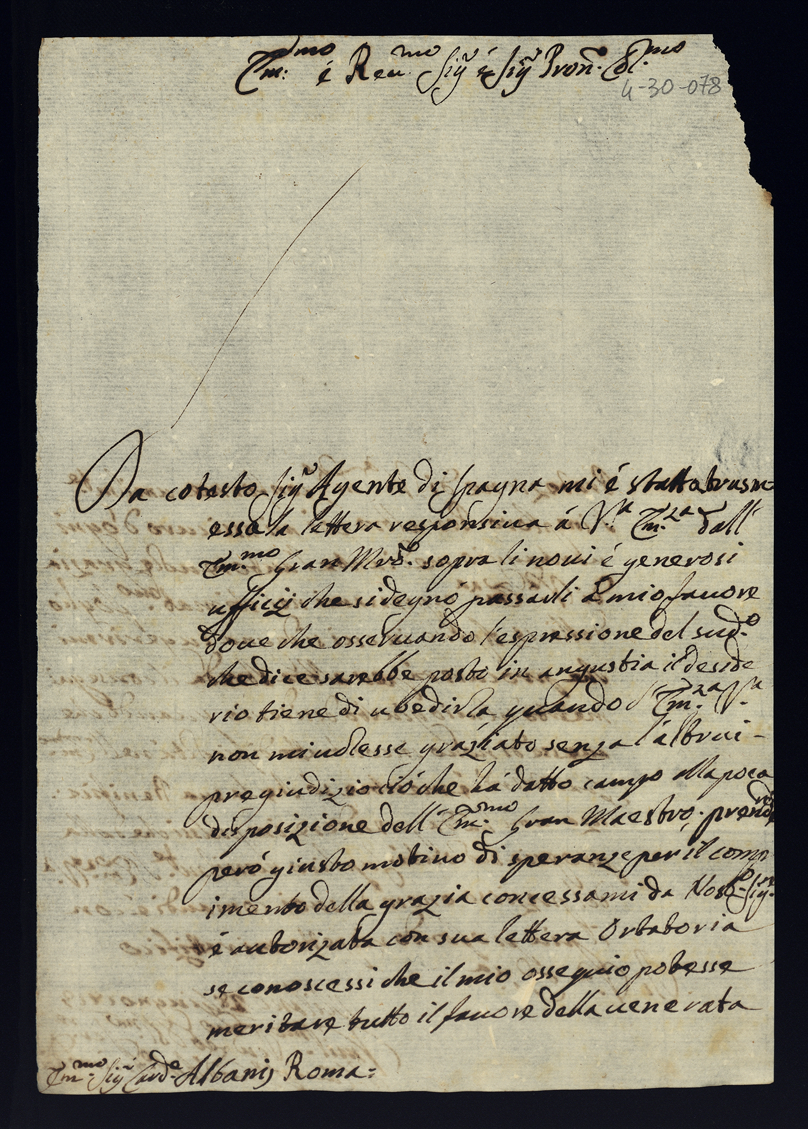 Em:mo é Reu.mo Sig.r é Sig.r Pron. Col.mo
4-30-078
Da cotesto Sig.r Agente di Spagna mi é statta trasm-
essa la lettera responsiva á V.ra Em.za dall'
Em.mo Gran Mro. sopra li noui é generosi
uffici che si degno passarli á mio fauore
doue che osseruando l'espressione del sud.o
che dice sarebbe posto in angustia il deside
rio tiene di ubedirla quando l'Em.za V.ra
non mi uolesse graziato senza l'altrui-
pregiudizio ció che há datto campo alla poca
disposizione dell'Em.mo Gran Maestro. prend
peró giusto motiuo di speranze per il comp-
imento della grazia concessami da Nost.o Sig.re
é autorizata con sua lettera Ortatoria
se conoscessi che il mio ossequio potesse
meritare tutto il fauore della uenerata
Em.mo Sig.r Card.e Albanij Roma=